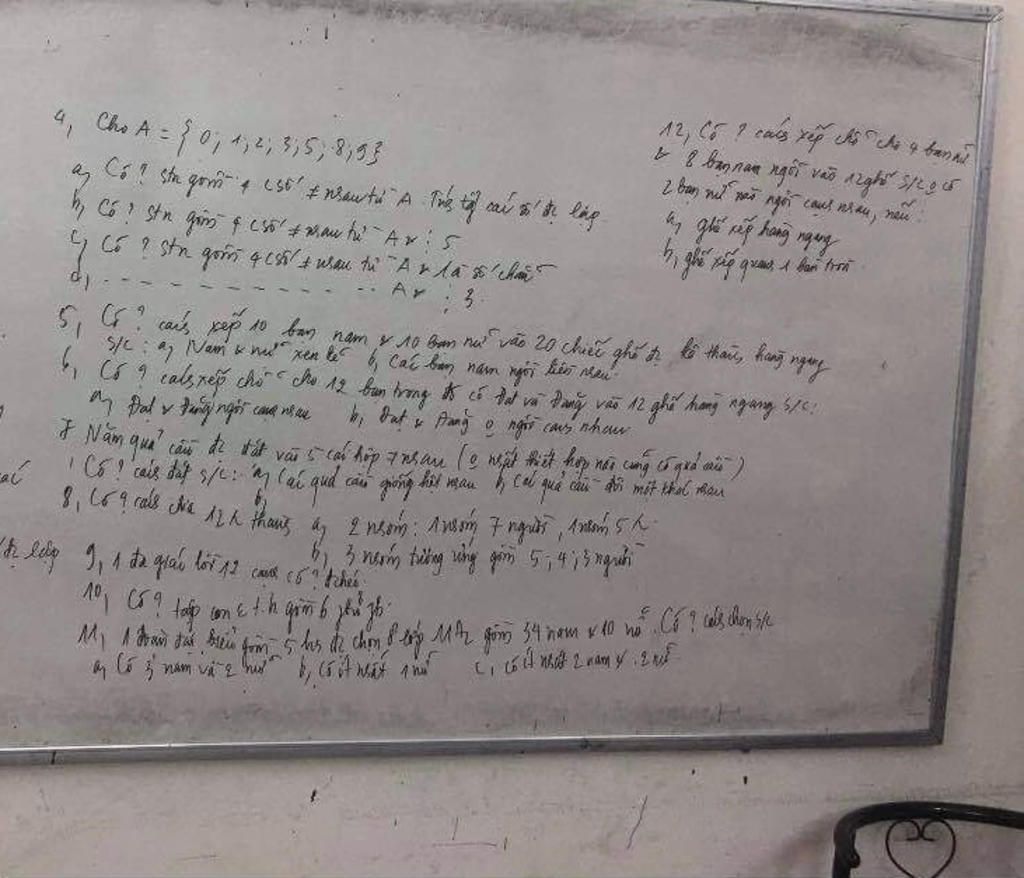 4, Cho A = { 0; 1; 2; 3; 5; 8; 9}
a, Có ? stn gồm 4 csố ≠ nhau từ A. Tính tổng các số đz lập.
b, Có ? stn gồm 4 csố ≠ nhau từ A & ⋮ 5
c, Có ? stn gồm 4 csố ≠ nhau từ A & là số chẵn
d, - - - - - - - - - - - - - A & ⋮ 3.
5, Có ? cách xếp 10 bạn nam & 10 bạn nữ vào 20 chiếc ghế đz kê thành hàng ngang
s/c: a, Nam & nữ xen kẽ b, Các bạn nam ngồi liền nhau.
6, Có ? cách xếp chỗ cho 12 bạn trong đó có Đạt và Đăng vào 12 ghế hàng ngang s/c:
a, Đạt & Đăng ngồi cạnh nhau b, Đạt & Đăng o ngồi cạnh nhau
7, Năm quả cầu đz đặt vào 5 cái hộp ≠ nhau (o nhất thiết hộp nào cũng có quả cầu)
Có ? cách đặt s/c: a, Các quả cầu giống hệt nhau b, Các quả cầu đôi một khác nhau
8, Có ? cách chia 12 h thành a, 2 nhóm: 1 nhóm 7 người, 1 nhóm 5 h.
b, 3 nhóm tương ứng gồm 5; 4; 3 người
đz lập
9, 1 đa giác lồi 12 cạnh có ? đchéo.
10, Có ? tập con t.h gồm 6 ptử
11, 1 đoàn đại biểu gồm 5 hs đz chọn lớp 11A2 gồm 34 nam & 10 nữ. Có ? cách chọn s/c
a, Có 3 nam và 2 nữ b, có ít nhất 1 nữ c, có ít nhất 2 nam & 2 nữ.
12, Có ? cách xếp chỗ cho 4 bạn nữ
& 8 bạn nam ngồi vào 12 ghế s/c o có
2 bạn nữ nào ngồi cạnh nhau, nếu:
a, ghế xếp hàng ngang
b, ghế xếp quanh 1 bàn tròn.